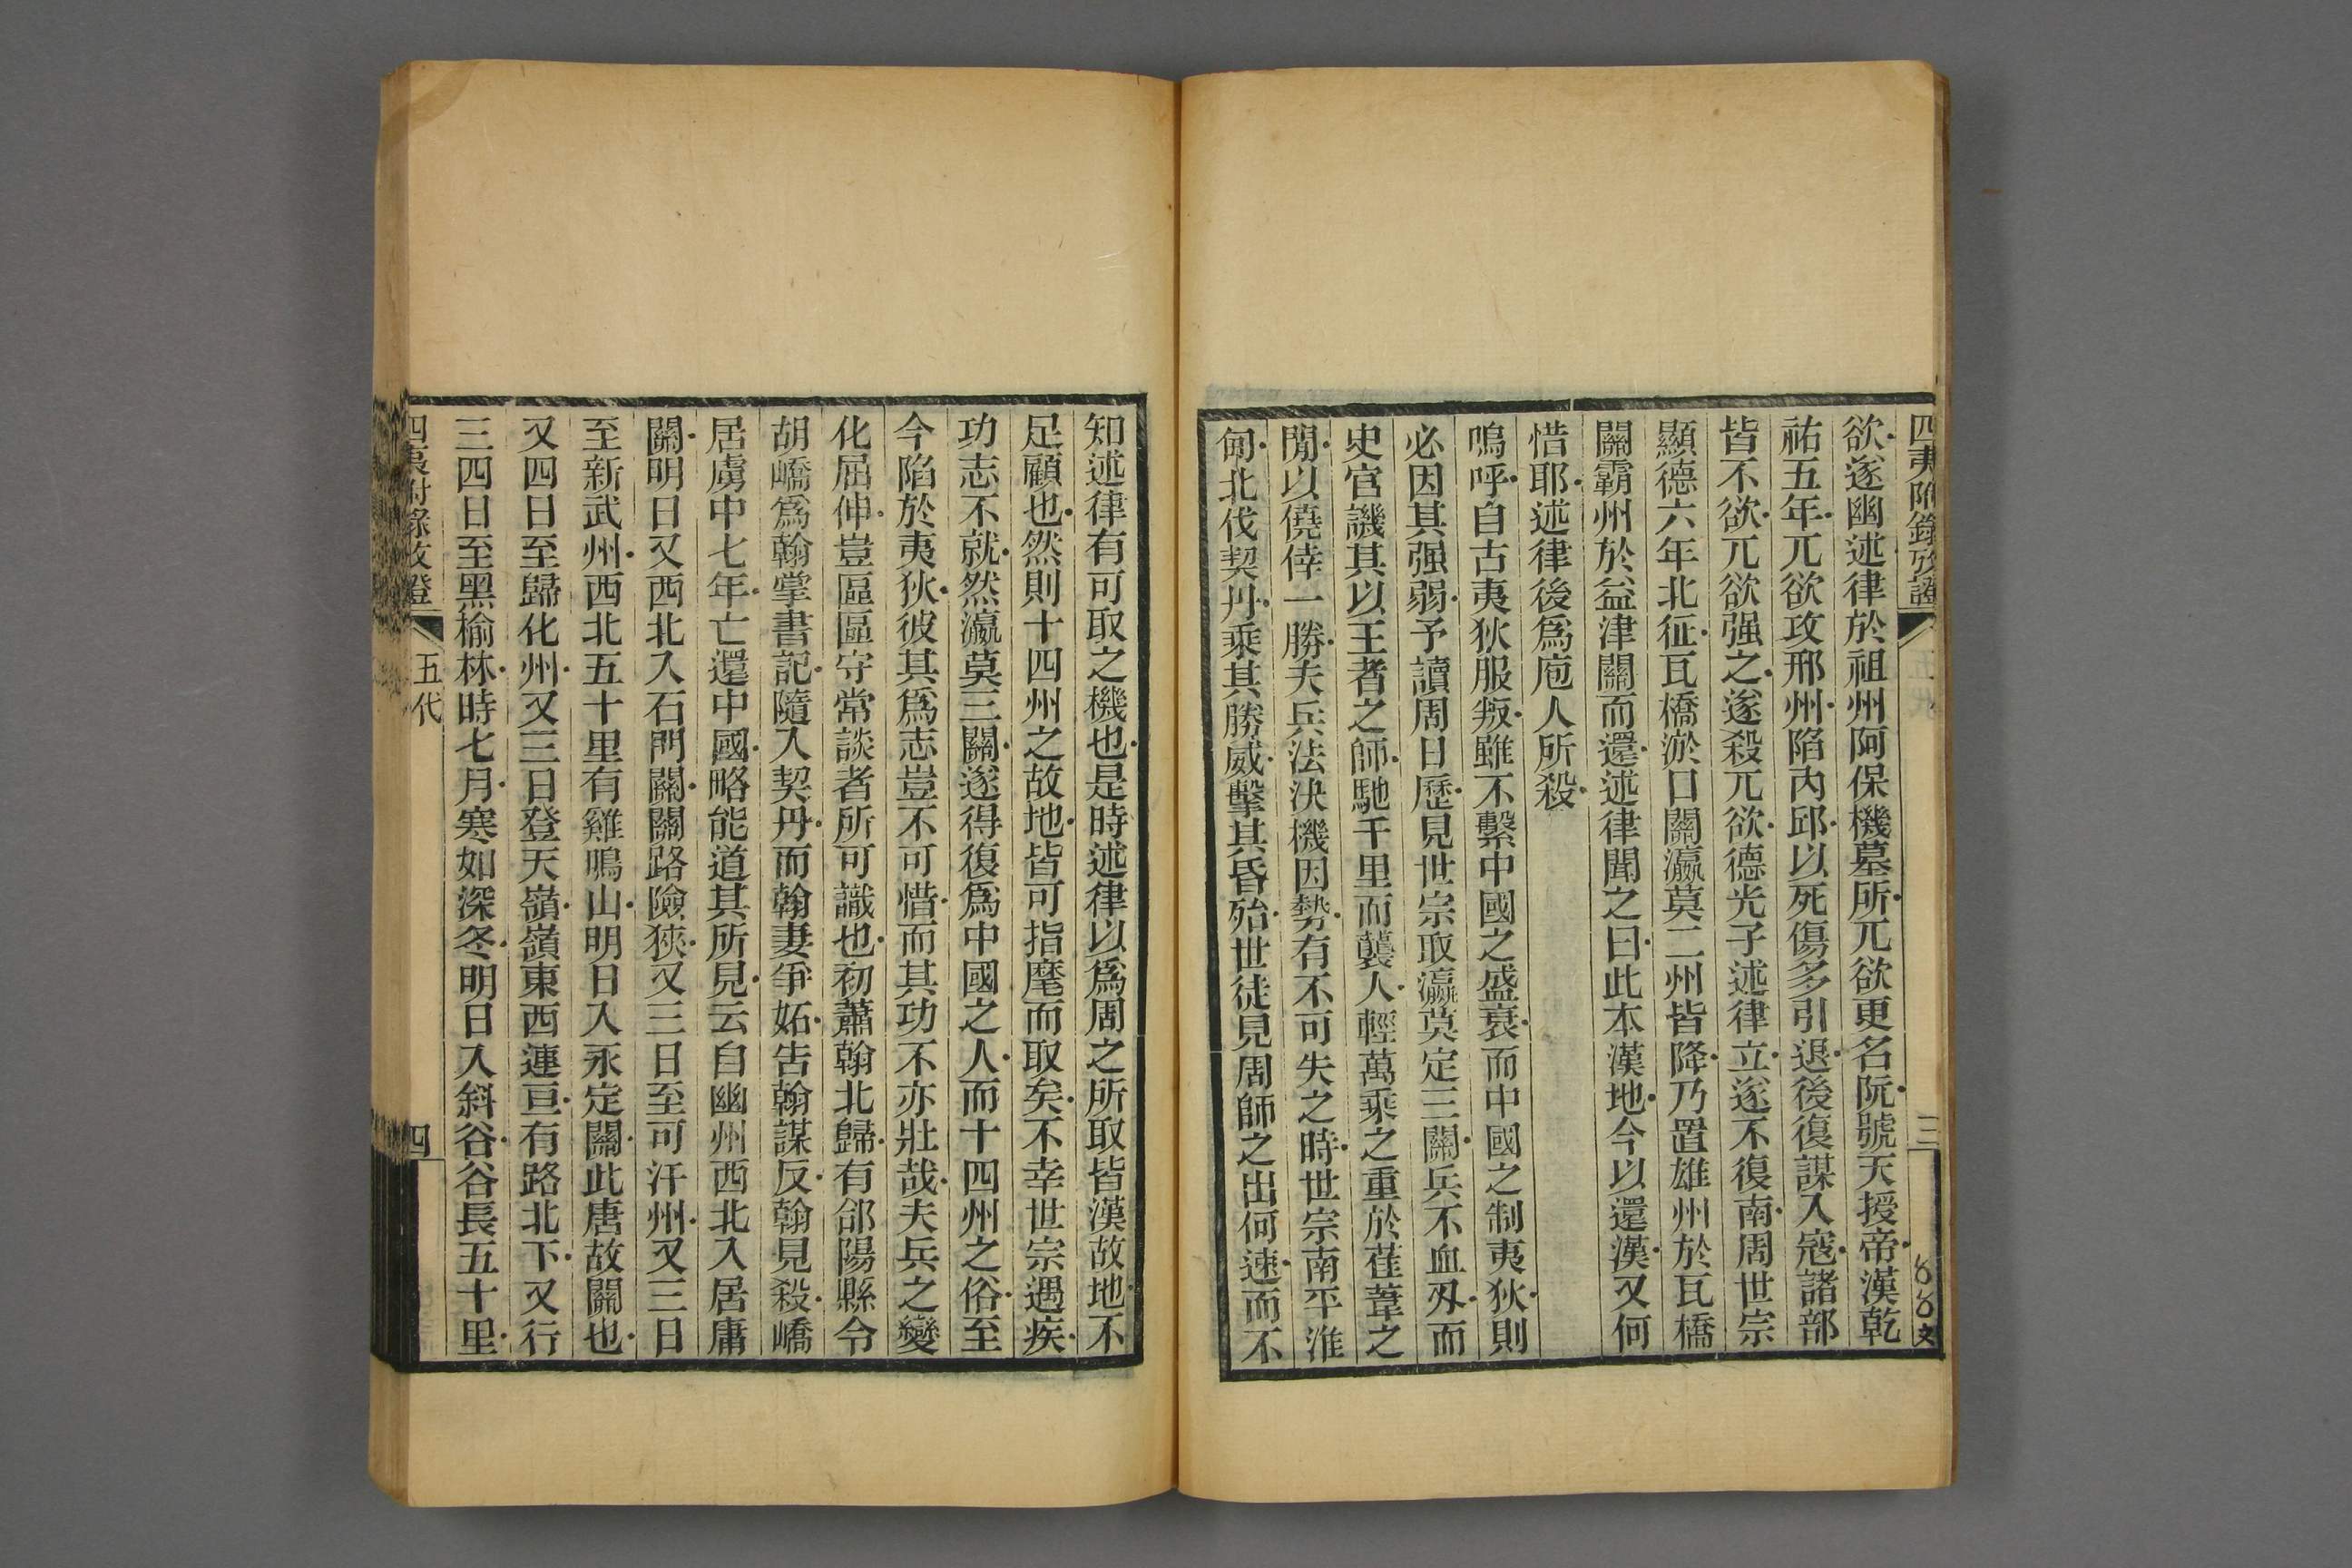 四夷附錄攷證
三
欲遂幽述律於祖州阿保機墓所兀欲更名阮號天授帝漢乾
祐五年兀欲攻邢州陷內邱以死傷多引退後復謀入寇諸部
皆不欲兀欲强之遂殺兀欲德光子述律立遂不復南周世宗
顯德六年北征瓦橋淤口關瀛莫二州皆降乃置雄州於瓦橋
關霸州於益津關而還述律聞之曰此本漢地今以還漢又何
惜耶述律後爲庖人所殺
嗚呼自古夷狄服叛雖不繫中國之盛衰而中國之制夷狄則
必因其强弱予讀周日歷見世宗取瀛莫定三關兵不血刄而
史官譏其以王者之師馳千里而襲人輕萬乘之重於萑葦之
閒以僥倖一勝夫兵法決機因勢有不可失之時世宗南平淮
甸北伐契丹乘其勝威擊其昏殆世徒見周師之出何速而不
知述律有可取之機也是時述律以爲周之所取皆漢故地不
足顧也然則十四州之故地皆可指麾而取矣不幸世宗遇疾
功志不就然瀛莫三關遂得復爲中國之人而十四州之俗至
今陷於夷狄彼其爲志豈不可惜而其功不亦壯哉夫兵之變
化屈伸豈區區守常談者所可識也初蕭翰北歸有郃陽縣令
胡嶠爲翰掌書記隨入契丹而翰妻爭妬告翰謀反翰見殺嶠
居虜中七年亡還中國略能道其所見云自幽州西北入居庸
關明日又西北入石門關關路險狹又三日至可汗州又三日
至新武州西北五十里有雞鳴山明日入永定關此唐故關也
又四日至歸化州又三日登天嶺嶺東西連亘有路北下又行
三四日至黑榆林時七月寒如深冬明日入斜谷谷長五十里
四夷附錄攷證
五代
四